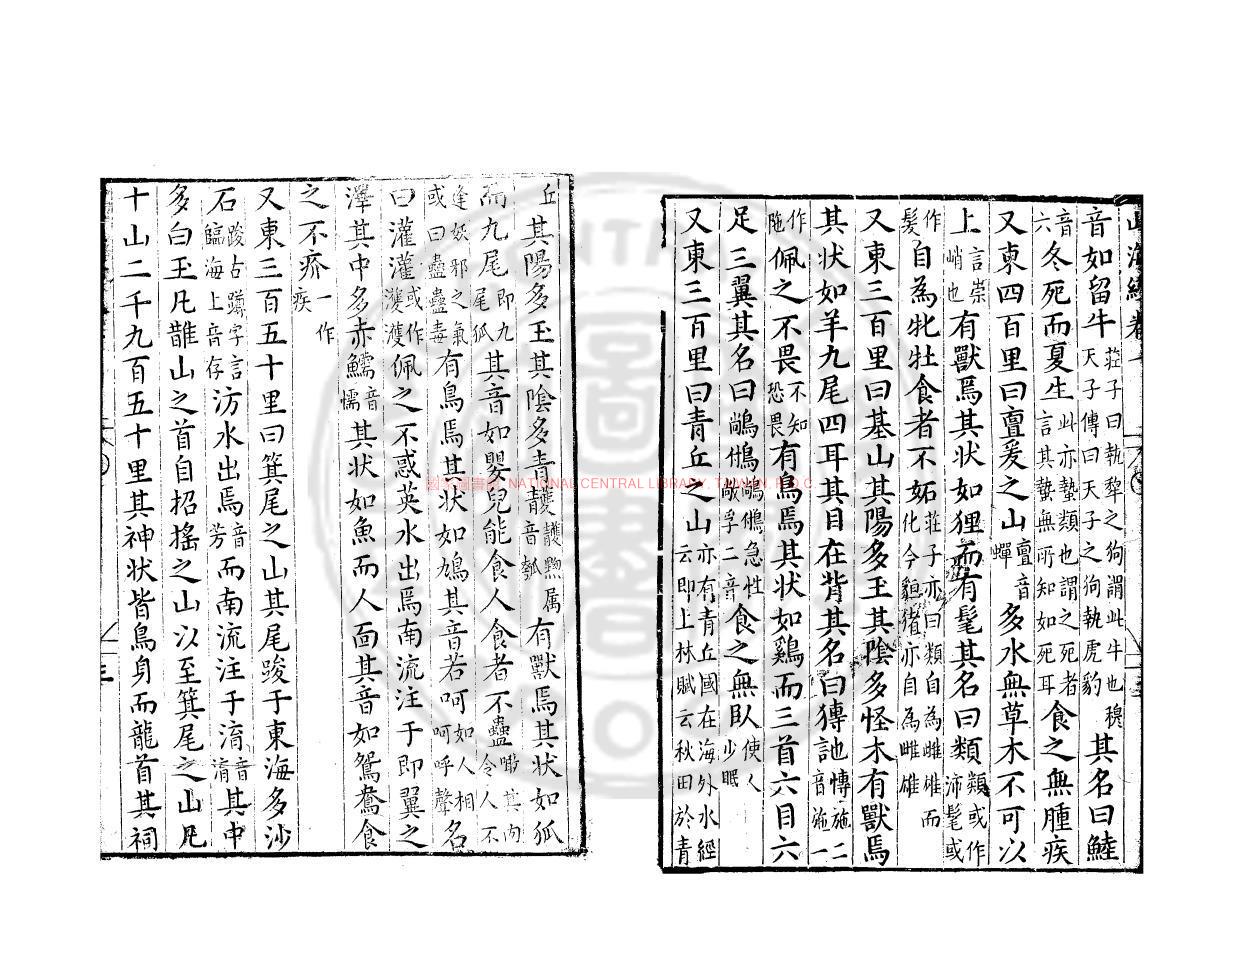 音如留牛莊子曰執犂之狗謂此牛也穆天子傳曰天子之狗執虎豹其名曰鯥
音六冬死而夏生此亦蟄類也謂之死者言其蟄無所知如死耳食之無腫疾
又東四百里曰亶爰之山亶音蟬多水無草木不可以
上言崇峭也有獸焉其狀如狸而有髦其名曰類類或作沛髦或
作髮自為牝牡食者不妬莊子亦曰類自為雌雄而化今貆豬亦自為雌雄
又東三百里曰基山其陽多玉其陰多怪木有獸焉
其狀如羊九尾四耳其目在背其名曰猼訑博施二音施一
作陁佩之不畏不知恐畏有鳥焉其狀如鷄而三首六目六
足三翼其名曰䳤䳜䳤䳜急性敞孚二音食之無臥使人少眠
又東三百里曰青丘之山亦有青丘國在海外水經云即上林賦云秋田於青
丘其陽多玉其陰多青䨼䨼黝属音瓠有獸焉其狀如狐
而九尾即九尾狐其音如嬰兒能食人食者不蠱噉其肉令人不
逢妖邪之氣或曰蠱蠱毒有鳥焉其狀如鳩其音若呵如人相呵呼聲名
曰灌灌或作濩濩佩之不惑英水出焉南流注于即翼之
澤其中多赤鱬音懦其狀如魚而人面其音如鴛鴦食
之不疥一作疾
又東三百五十里曰箕尾之山其尾踆于東海多沙
石踆古蹲字言臨海上音存汸水出焉音芳而南流注于淯音淯其中
多白玉凡䧿山之首自招搖之山以至箕尾之山凡
十山二千九百五十里其神狀皆鳥身而龍首其祠
山海經卷一
國家圖書館 NATIONAL CENTRAL LIBRARY, TAIWAN, R.O.C.